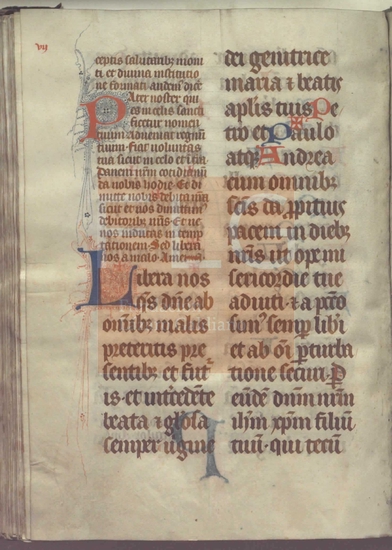 vij
ceptis salutaribꝫ moni
ti et divina institutio
ne formati audem⁹ dice
Pater noster qui
es in celis sancti
ficetur nomen
tuum Adveniat regnū
tuum · fiat voluntas
tua sicut in celo et in t̄ra
Panem nr̄m cotidianū
da nobis hodie · Et di
mitte nobis debita nr̄a
sicut et nos dimittim⁹
debitoribꝫ nr̄is · Et ne
nos inducas in temp
tationem · Sed libera
nos a malo · Amen
Libera nos
q̄s dn̄e ab
omībꝫ malis
preteritis pre
sentibꝫ et fut̉
is · et int̉cedēte
beata ⁊ gl̄osa
semper v̉gine
dei genitrice
maria ⁊ beatis
apl̄is tuis Pe
tro et Paulo
atqꝫ Andrea
cum omnibꝫ
sc̄is da ꝓpitius
pacem in diebꝫ
nr̄is ut ope mi
sericordie tue
adiuti · ⁊ a pc̄c̄o
sim⁹ semꝑ libī
et ab oī ꝑturba
tione securi · P̄
eūdē dn̄m nr̄m
ih̄m xp̄m filiū
tuū · qui tecū